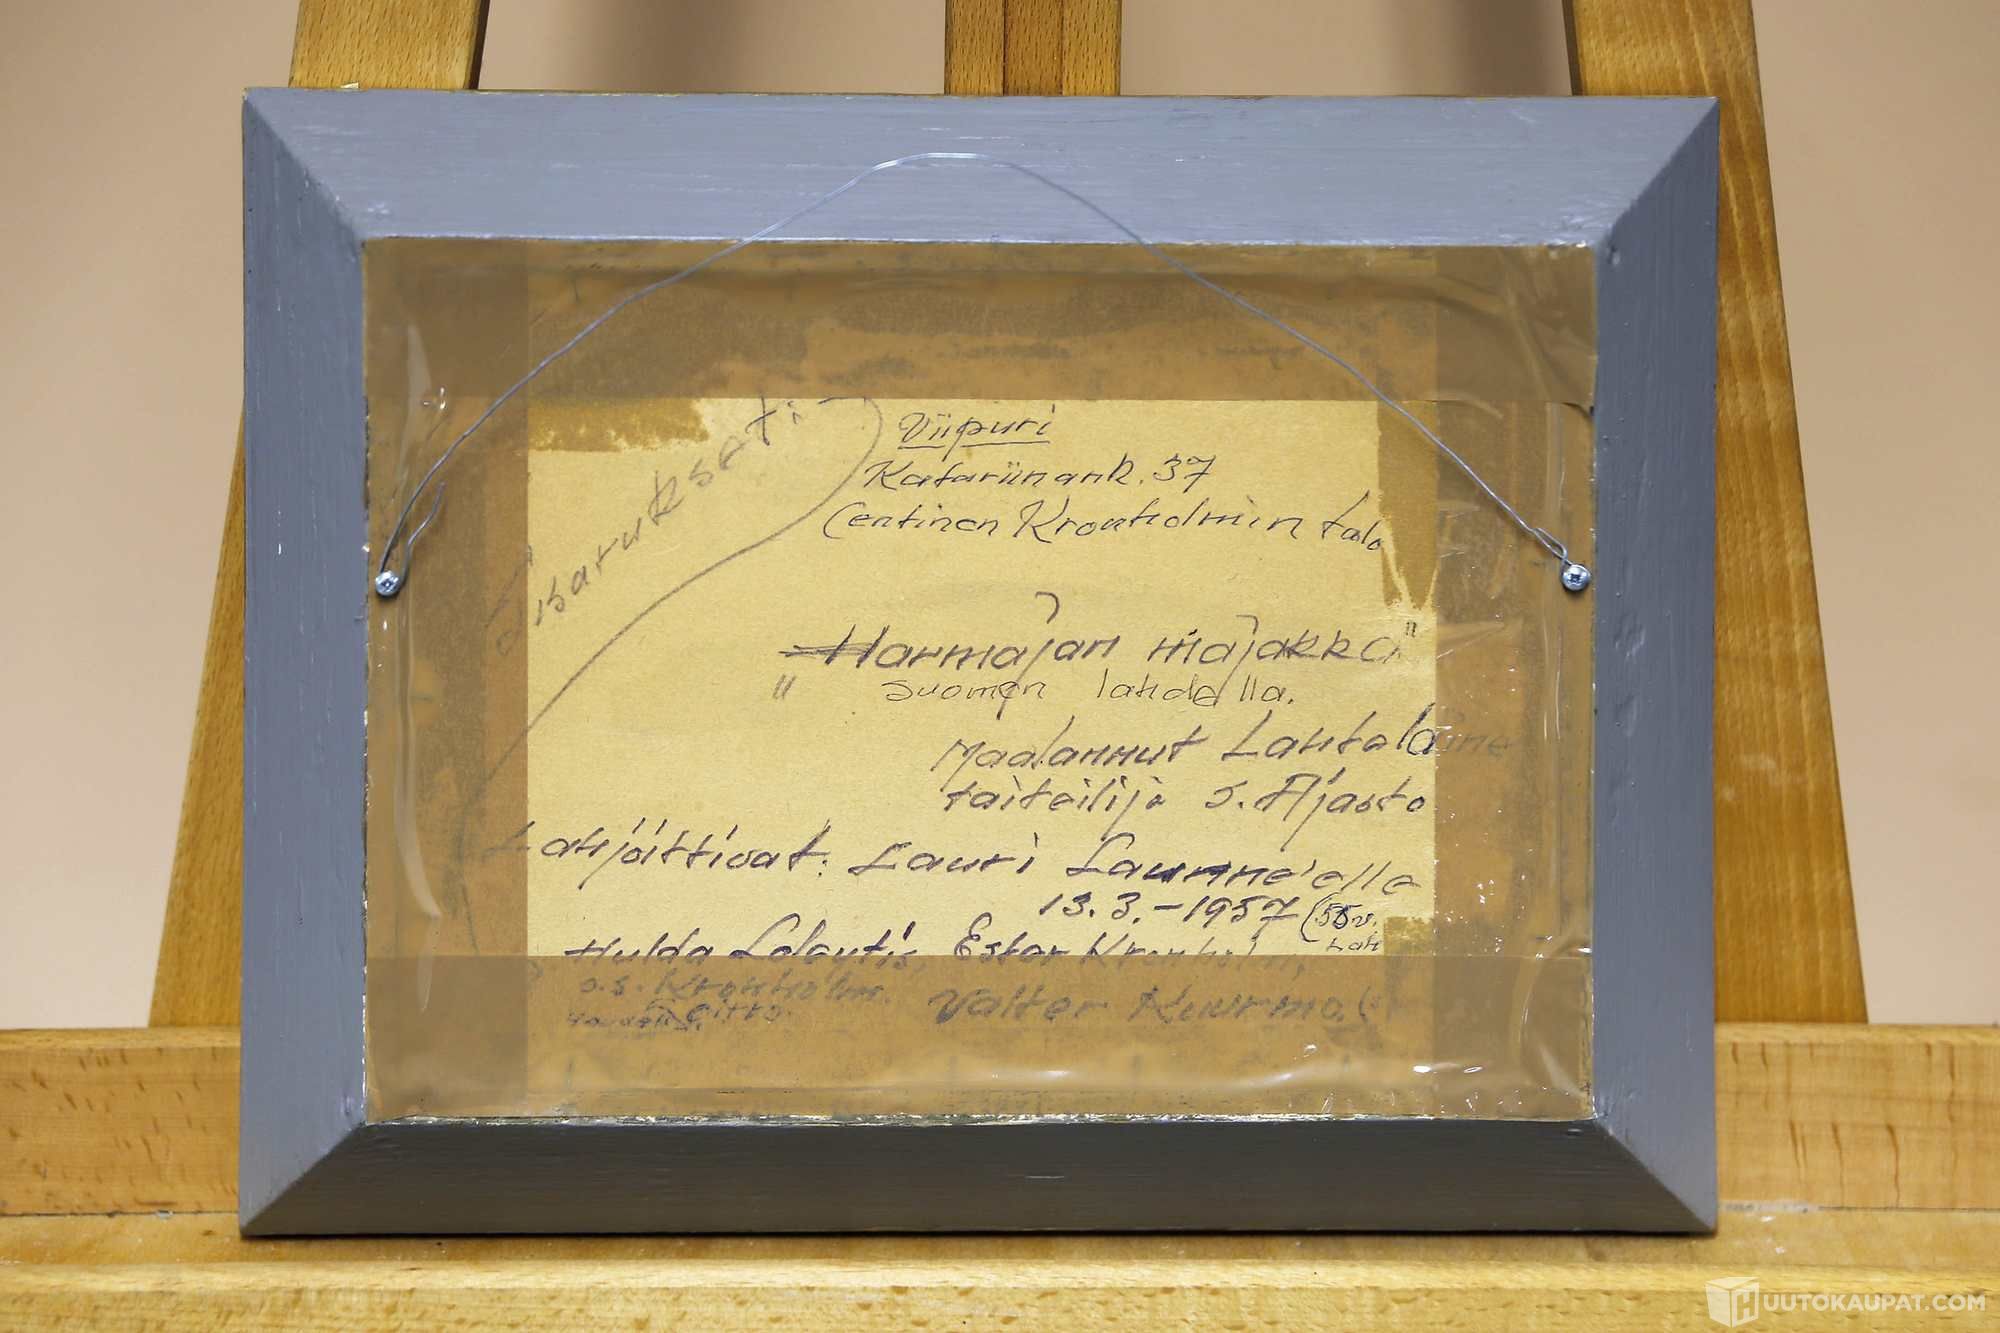 Viipuri
Katariinank. 37
Centinen Kronholmin talo
Harmajan majakka"
" Suomen lahdella.
Maalannut Lahtelaine
taiteilija S. Ajasto
Lahjoittivat: Lauri Laurnne'elle
13.3.-1957 (55v.
Lah
Hulda Loloutis, Ester Kronholm,
o.s. Kronholm. Valter Kuurma.
UUTOKAUPAT.COM